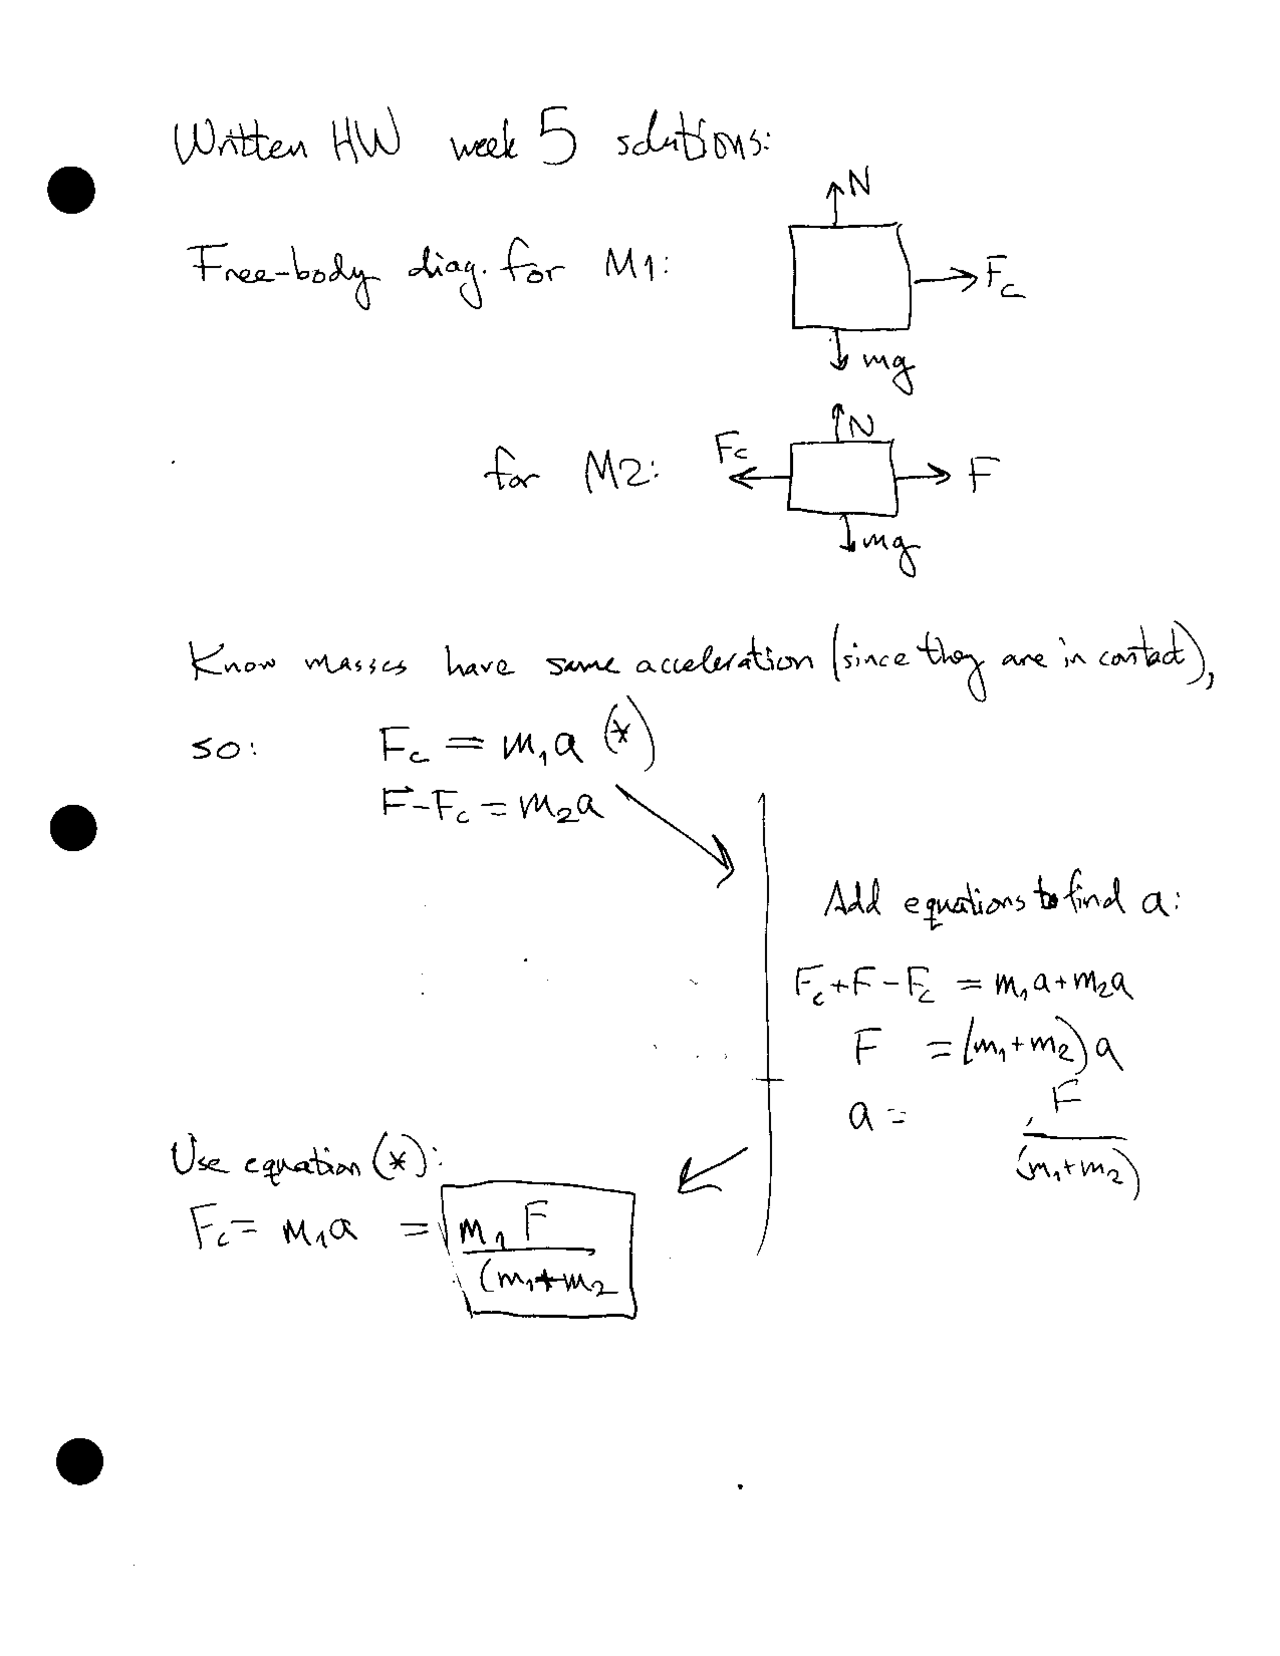 Written HW week 5 solutions:
N
Free-body diag. for M1:
Fc
mg
N
Fc
for M2:
F
mg
Know masses have same acceleration (since they are in contact),
so: Fc = m₁a (*)
F-Fc = m₂a
Add equations to find a:
Fc+F-Fc = m₁a+m₂a
F = (m₁+m₂)a
a = F
(m₁+m₂)
Use equation (*):
Fc = m₁a = m₁ F
(m₁+m₂